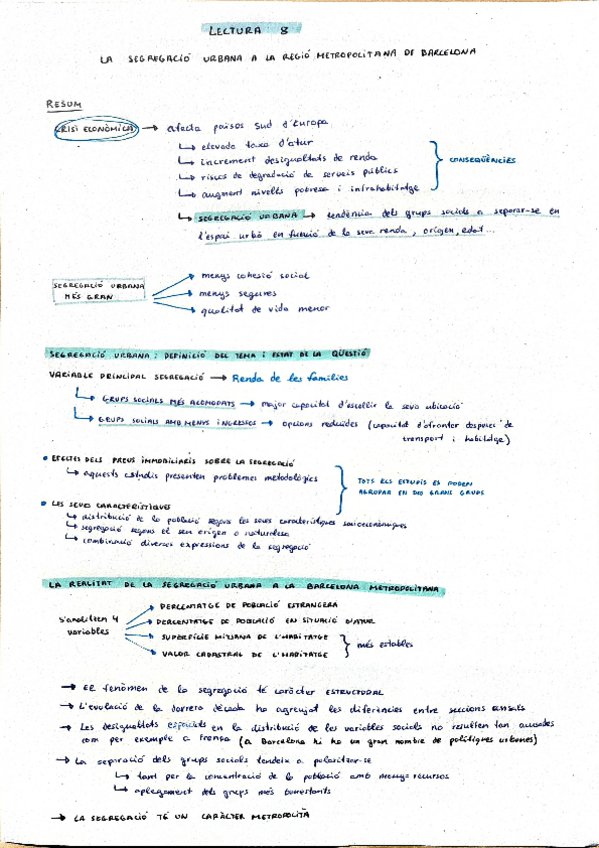 LECTURA 8
LA SEGREGACIÓ URBANA A LA REGIÓ METROPOLITANA DE BARCELONA
RESUM
CRISI ECONÒMICA → afecta països sud d'Europa
↳ elevada taxa d'atur
↳ increment desigualtats de renda
↳ riscos de degradació de serveis públics
↳ augment nivells pobresa i infrahabitatge
CONSEQÜÈNCIES
↳ SEGREGACIÓ URBANA → tendència dels grups socials a separar-se en
l'espai urbà en funció de la seva renda, origen, edat...
SEGREGACIÓ URBANA
MÉS GRAN
menys cohesió social
menys segures
qualitat de vida menor
SEGREGACIÓ URBANA: DEFINICIÓ DEL TEMA I ESTAT DE LA QÜESTIÓ
VARIABLE PRINCIPAL SEGREGACIÓ → Renda de les famílies
↳ GRUPS SOCIALS MÉS ACOMODATS → major capacitat d'escollir la seva ubicació
↳ GRUPS SOCIALS AMB MENYS INGRESSOS → opcions reduïdes (capacitat d'afrontar despeses de
transport i habitatge)
• EFECTES DELS PREUS IMMOBILIARIS SOBRE LA SEGREGACIÓ
↳ aquests estudis presenten problemes metodològics
TOTS ELS ESTUDIS ES PODEN
AGRUPAR EN DOS GRANS GRUPS
• LES SEVES CARACTERÍSTIQUES
↳ distribució de la població segons les seves característiques socioeconòmiques
↳ segregació segons el seu origen o naturalesa
↳ combinació diverses expressions de la segregació
LA REALITAT DE LA SEGREGACIÓ URBANA A LA BARCELONA METROPOLITANA
S'analitzen 4
variables
PERCENTATGE DE POBLACIÓ ESTRANGERA
PERCENTATGE DE POBLACIÓ EN SITUACIÓ D'ATUR
SUPERFÍCIE MITJANA DE L'HABITATGE
VALOR CADASTRAL DE L'HABITATGE
més estables
→ El fenòmen de la segregació té caràcter ESTRUCTURAL
→ L'evolució de la darrera dècada ha agreujat les diferències entre seccions censals
→ Les desigualtats espacials en la distribució de les variables socials no resulten tan acusades
com per exemple a França (a Barcelona hi ha un gran nombre de polítiques urbanes)
→ La separació dels grups socials tendeix a polaritzar-se
↳ tant per la concentració de la població amb menys recursos
↳ aplegament dels grups més benestants
→ LA SEGREGACIÓ TÉ UN CARÀCTER METROPOLITÀ